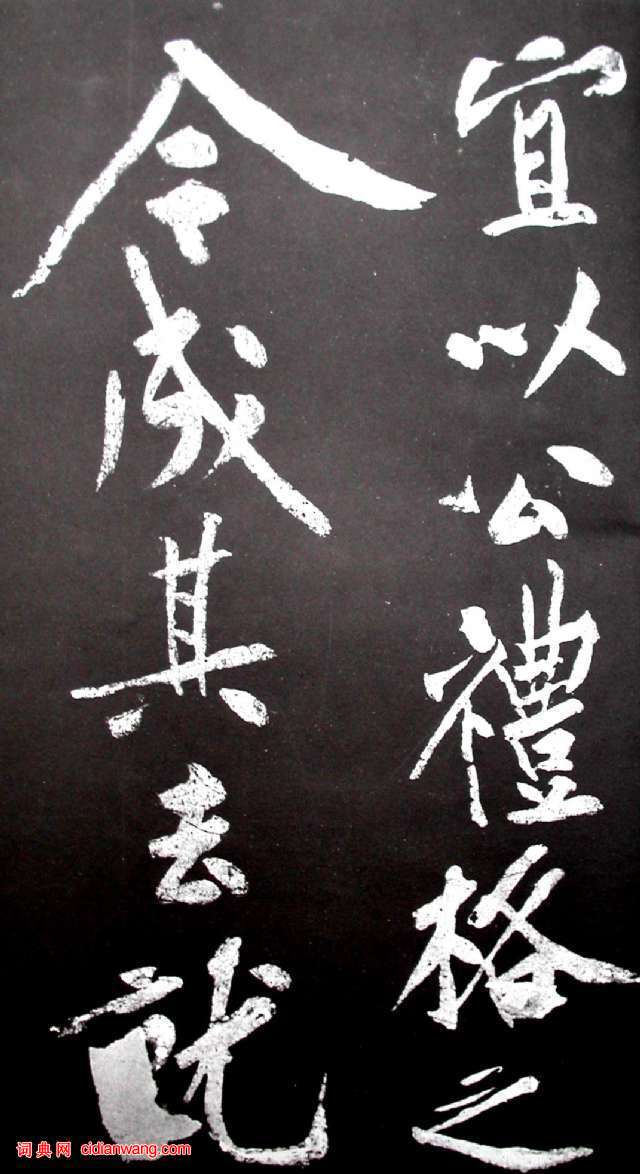 宜以公禮格之
今成其去就
词典网 cidianwang.com